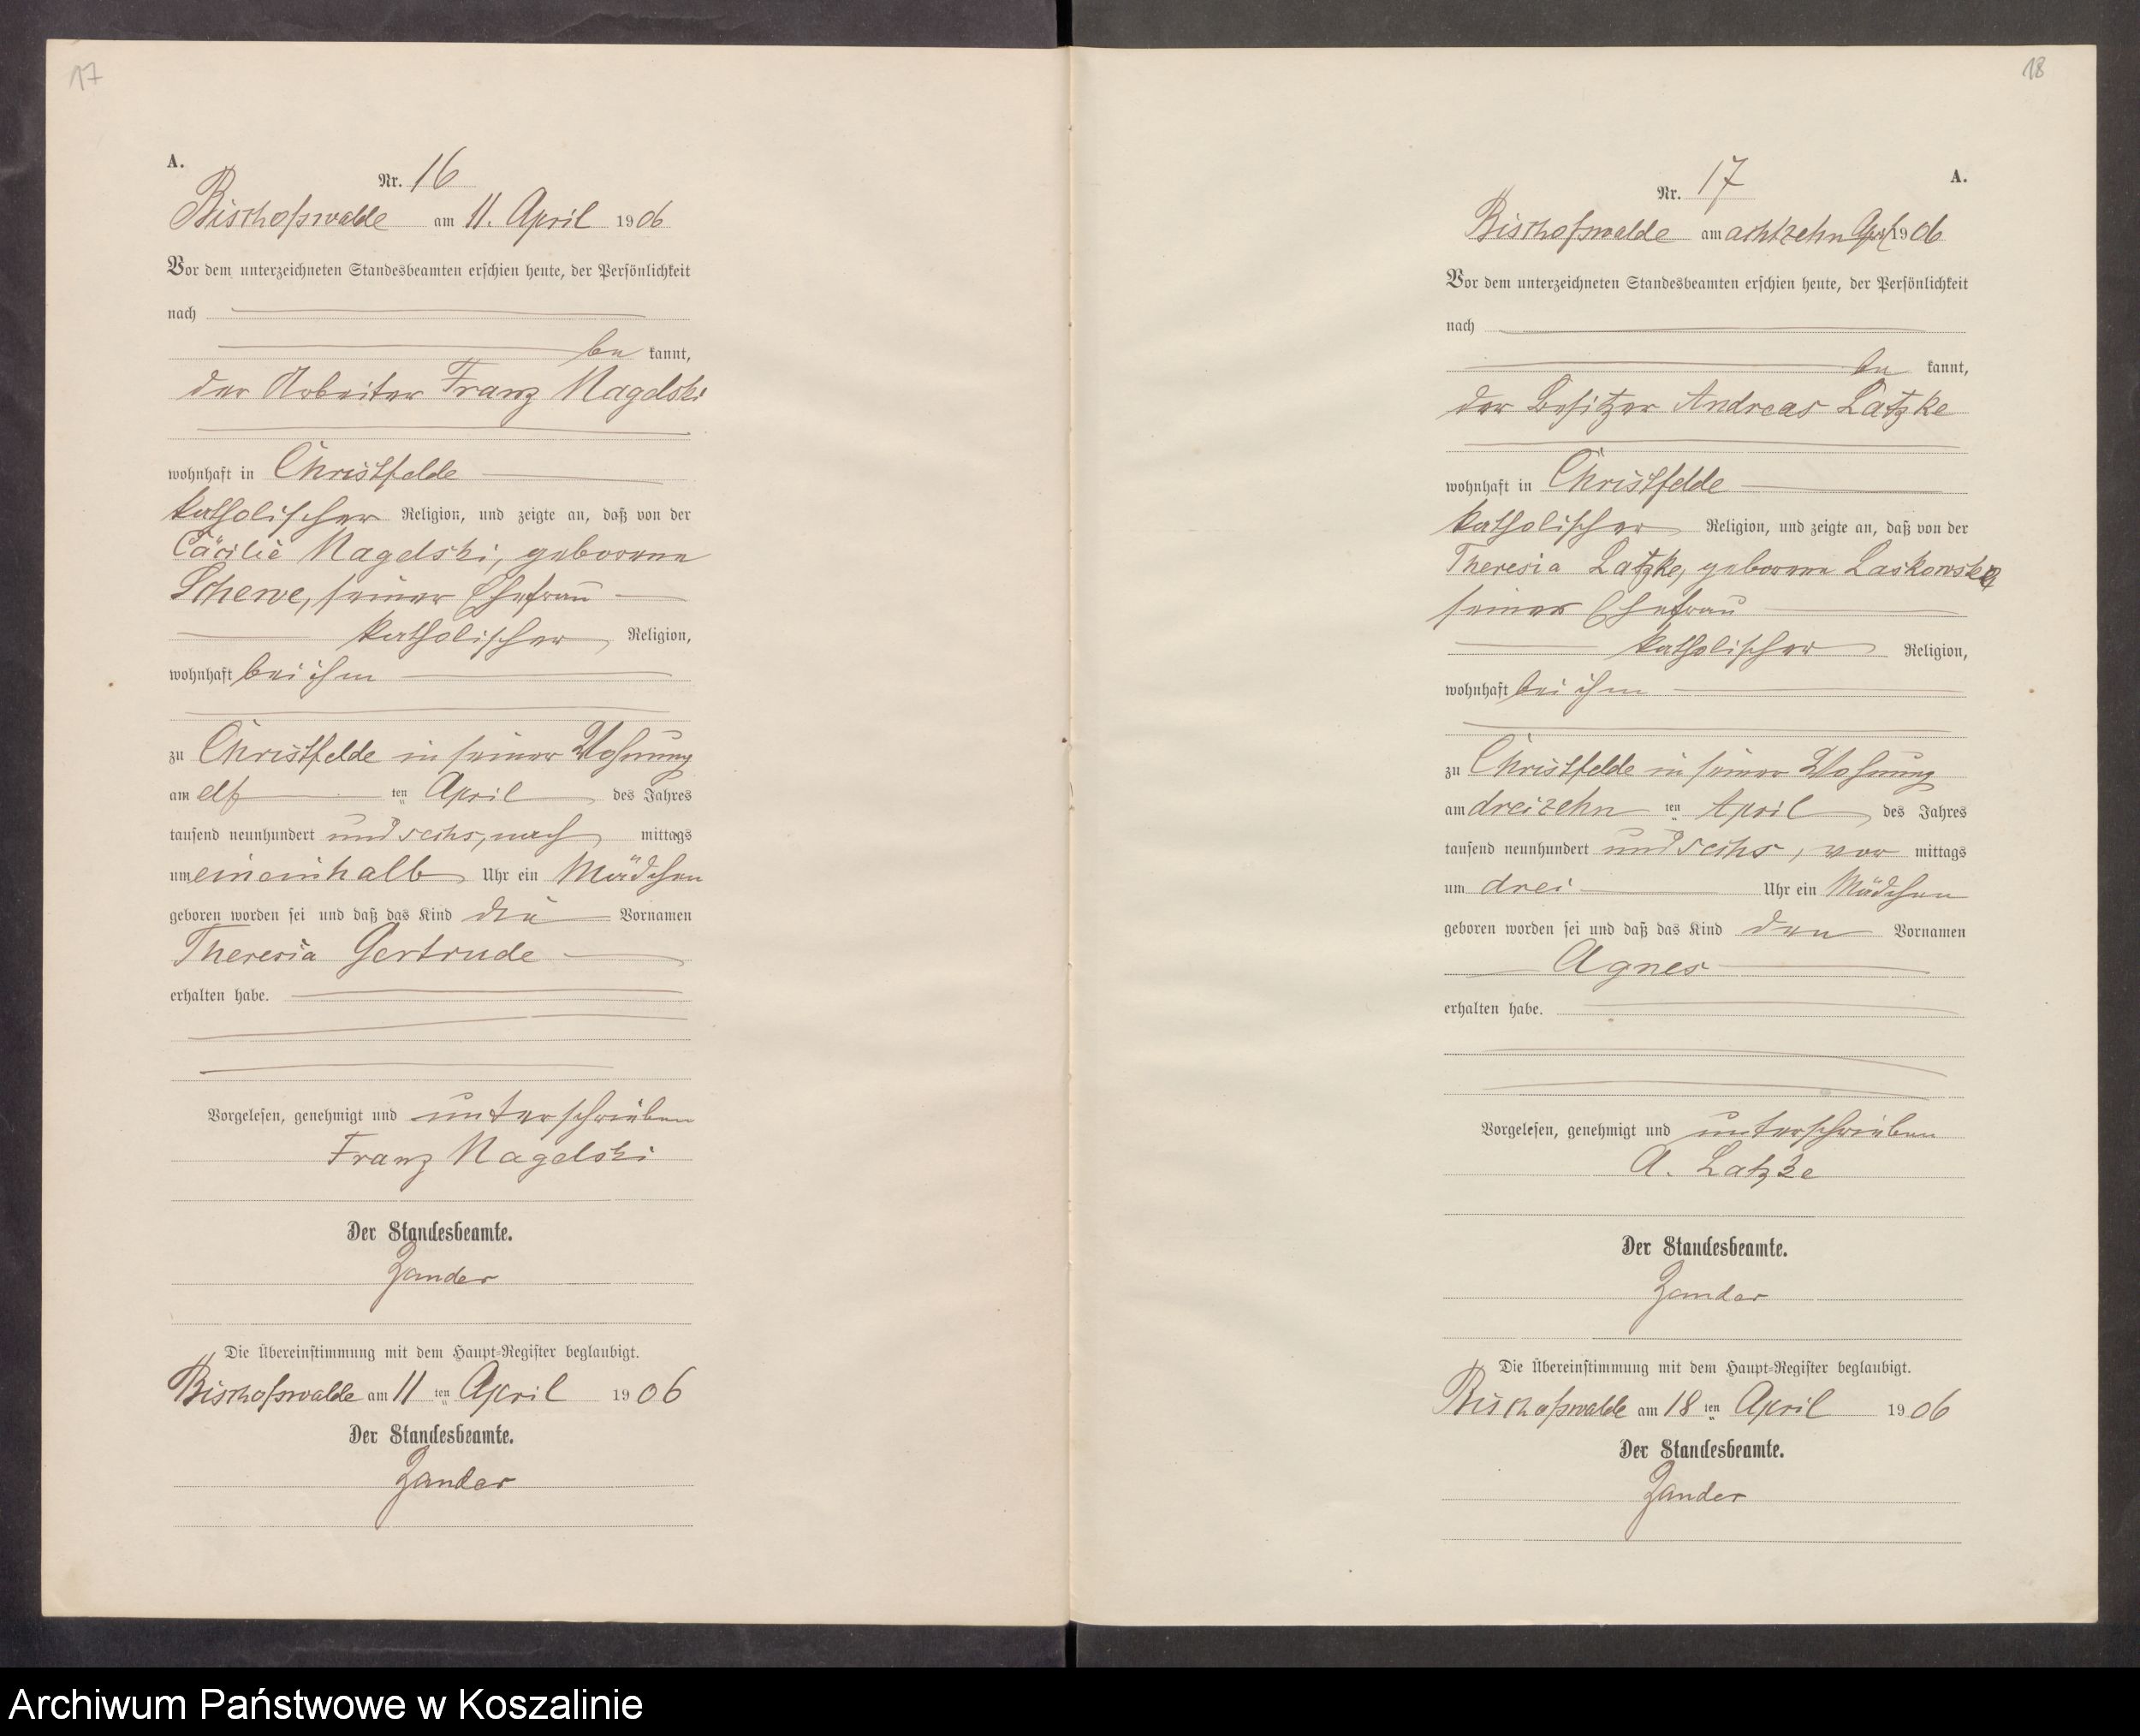 17
A.
Nr. 16
Bischofswalde am 11. April 1906
Vor dem unterzeichneten Standesbeamten erschien heute, der Persönlichkeit
nach
be kannt,
der Arbeiter Franz Nagelski
wohnhaft in Christfelde
katholischer Religion, und zeigte an, daß von der
Cäcilie Nagelski, geborene
Schewe, seiner Ehefrau
katholischer Religion,
wohnhaft bei ihm
zu Christfelde in seiner Wohnung
am elf ten April des Jahres
tausend neunhundert und sechs, nach mittags
um eineinhalb Uhr ein Mädchen
geboren worden sei und daß das Kind die Vornamen
Theresia Gertrude
erhalten habe.
Vorgelesen, genehmigt und unterschrieben
Franz Nagelski
Der Standesbeamte.
Zander
Die Übereinstimmung mit dem Haupt-Register beglaubigt.
Bischofswalde am 11 ten April 1906
Der Standesbeamte.
Zander
18
A.
Nr. 17
Bischofswalde am achtzehn April 1906
Vor dem unterzeichneten Standesbeamten erschien heute, der Persönlichkeit
nach
be kannt,
der Besitzer Andreas Latzke
wohnhaft in Christfelde
katholischer Religion, und zeigte an, daß von der
Theresia Latzke, geborene Laskowski
seiner Ehefrau
katholischer Religion,
wohnhaft bei ihm
zu Christfelde in seiner Wohnung
am dreizehn ten April des Jahres
tausend neunhundert und sechs, vor mittags
um drei Uhr ein Mädchen
geboren worden sei und daß das Kind den Vornamen
Agnes
erhalten habe.
Vorgelesen, genehmigt und unterschrieben
A. Latzke
Der Standesbeamte.
Zander
Die Übereinstimmung mit dem Haupt-Register beglaubigt.
Bischofswalde am 18 ten April 1906
Der Standesbeamte.
Zander
Archiwum Państwowe w Koszalinie